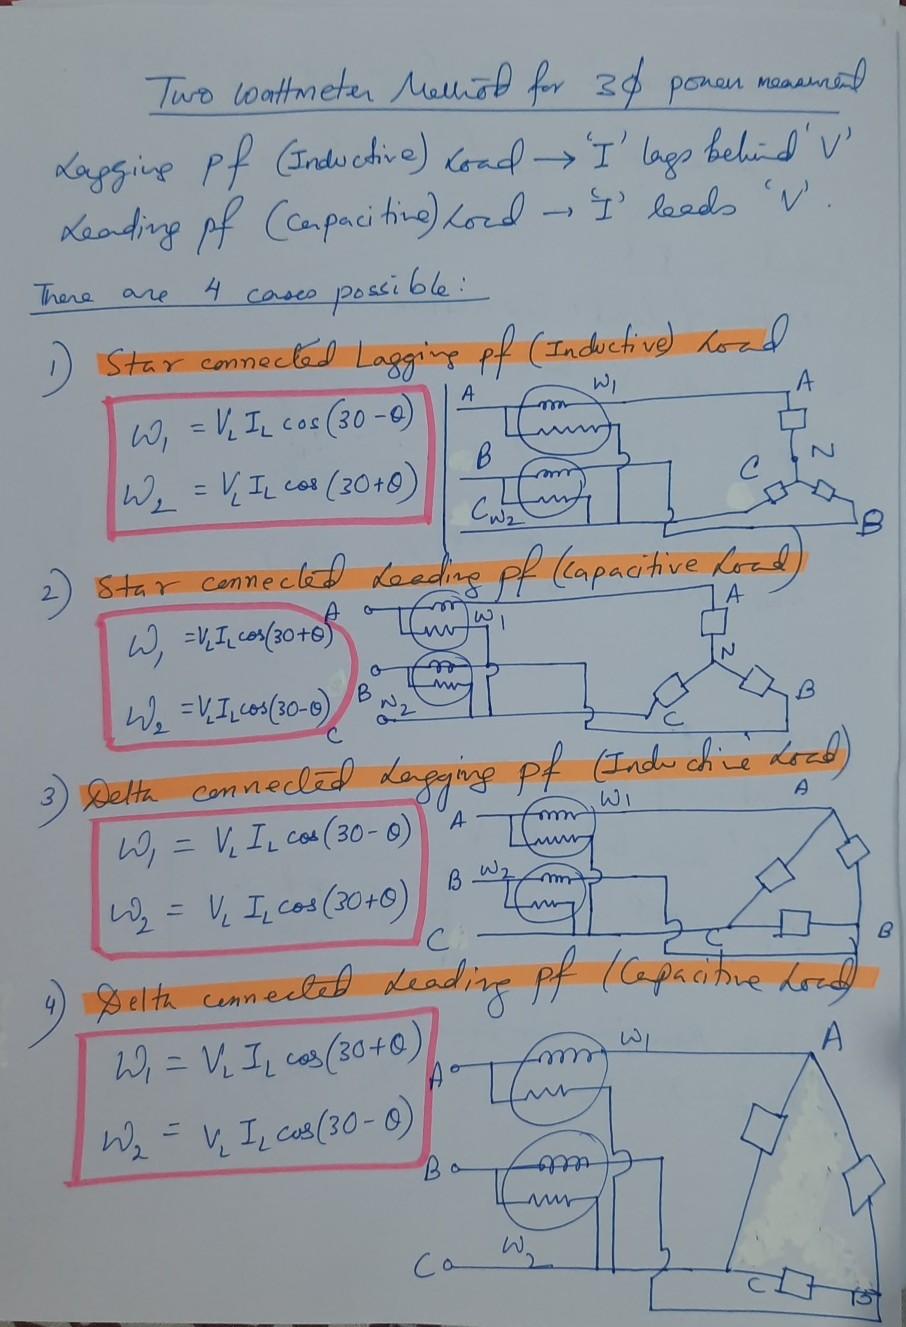 Two Wattmeter Method for 3ϕ power measurement
Lagging pf (Inductive) Load → 'I' lags behind 'V'
Leading pf (Capacitive) Load → 'I' leads 'V'.
There are 4 cases possible:
1) Star connected Lagging pf (Inductive) Load
W₁ = V_L I_L cos(30-θ)
W₂ = V_L I_L cos(30+θ)
A W₁ A
B C N
C W₂ B
2) Star connected Leading pf (Capacitive Load)
W₁ = V_L I_L cos(30+θ)
W₂ = V_L I_L cos(30-θ)
A W₁ A
N
B W₂ B
C C
3) Delta connected Lagging pf (Inductive Load)
W₁ = V_L I_L cos(30-θ)
W₂ = V_L I_L cos(30+θ)
A W₁ A
B W₂
C C B
4) Delta connected Leading pf (Capacitive Load)
W₁ = V_L I_L cos(30+θ)
W₂ = V_L I_L cos(30-θ)
A W₁ A
B
W₂
C C B